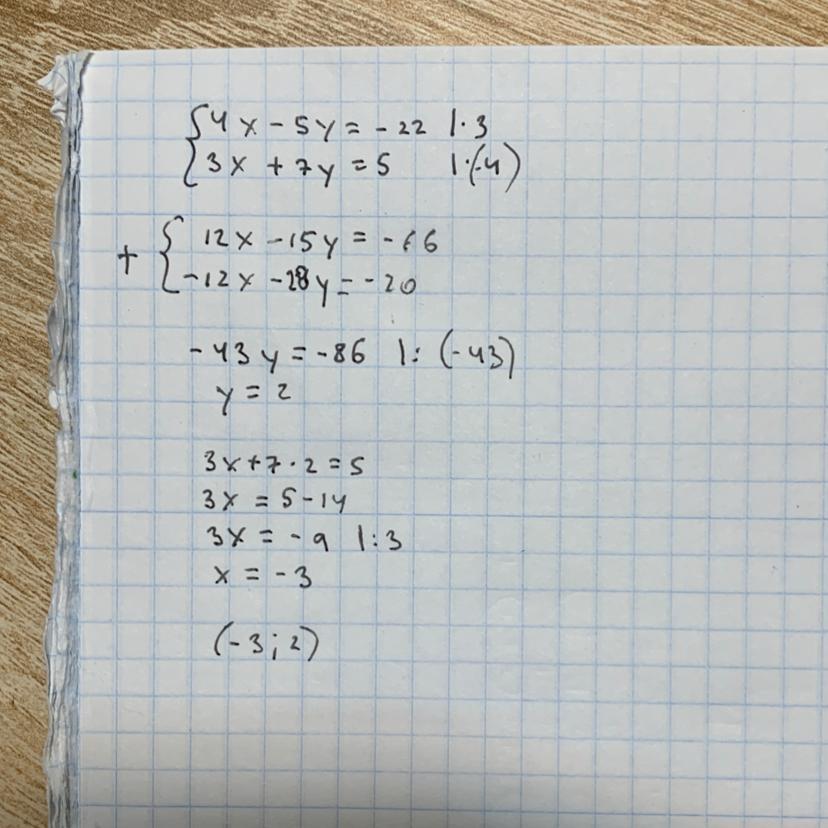 {4x - 5y = -22 |·3
{3x + 7y = 5 |·(-4)
+ { 12x - 15y = -66
{-12x - 28y = -20
-43y = -86 |: (-43)
y = 2
3x + 7 · 2 = 5
3x = 5 - 14
3x = -9 |:3
x = -3
(-3; 2)